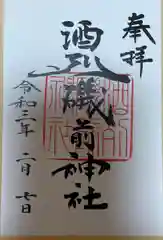 奉拝
酒列磯前神社
令和三年二月七日